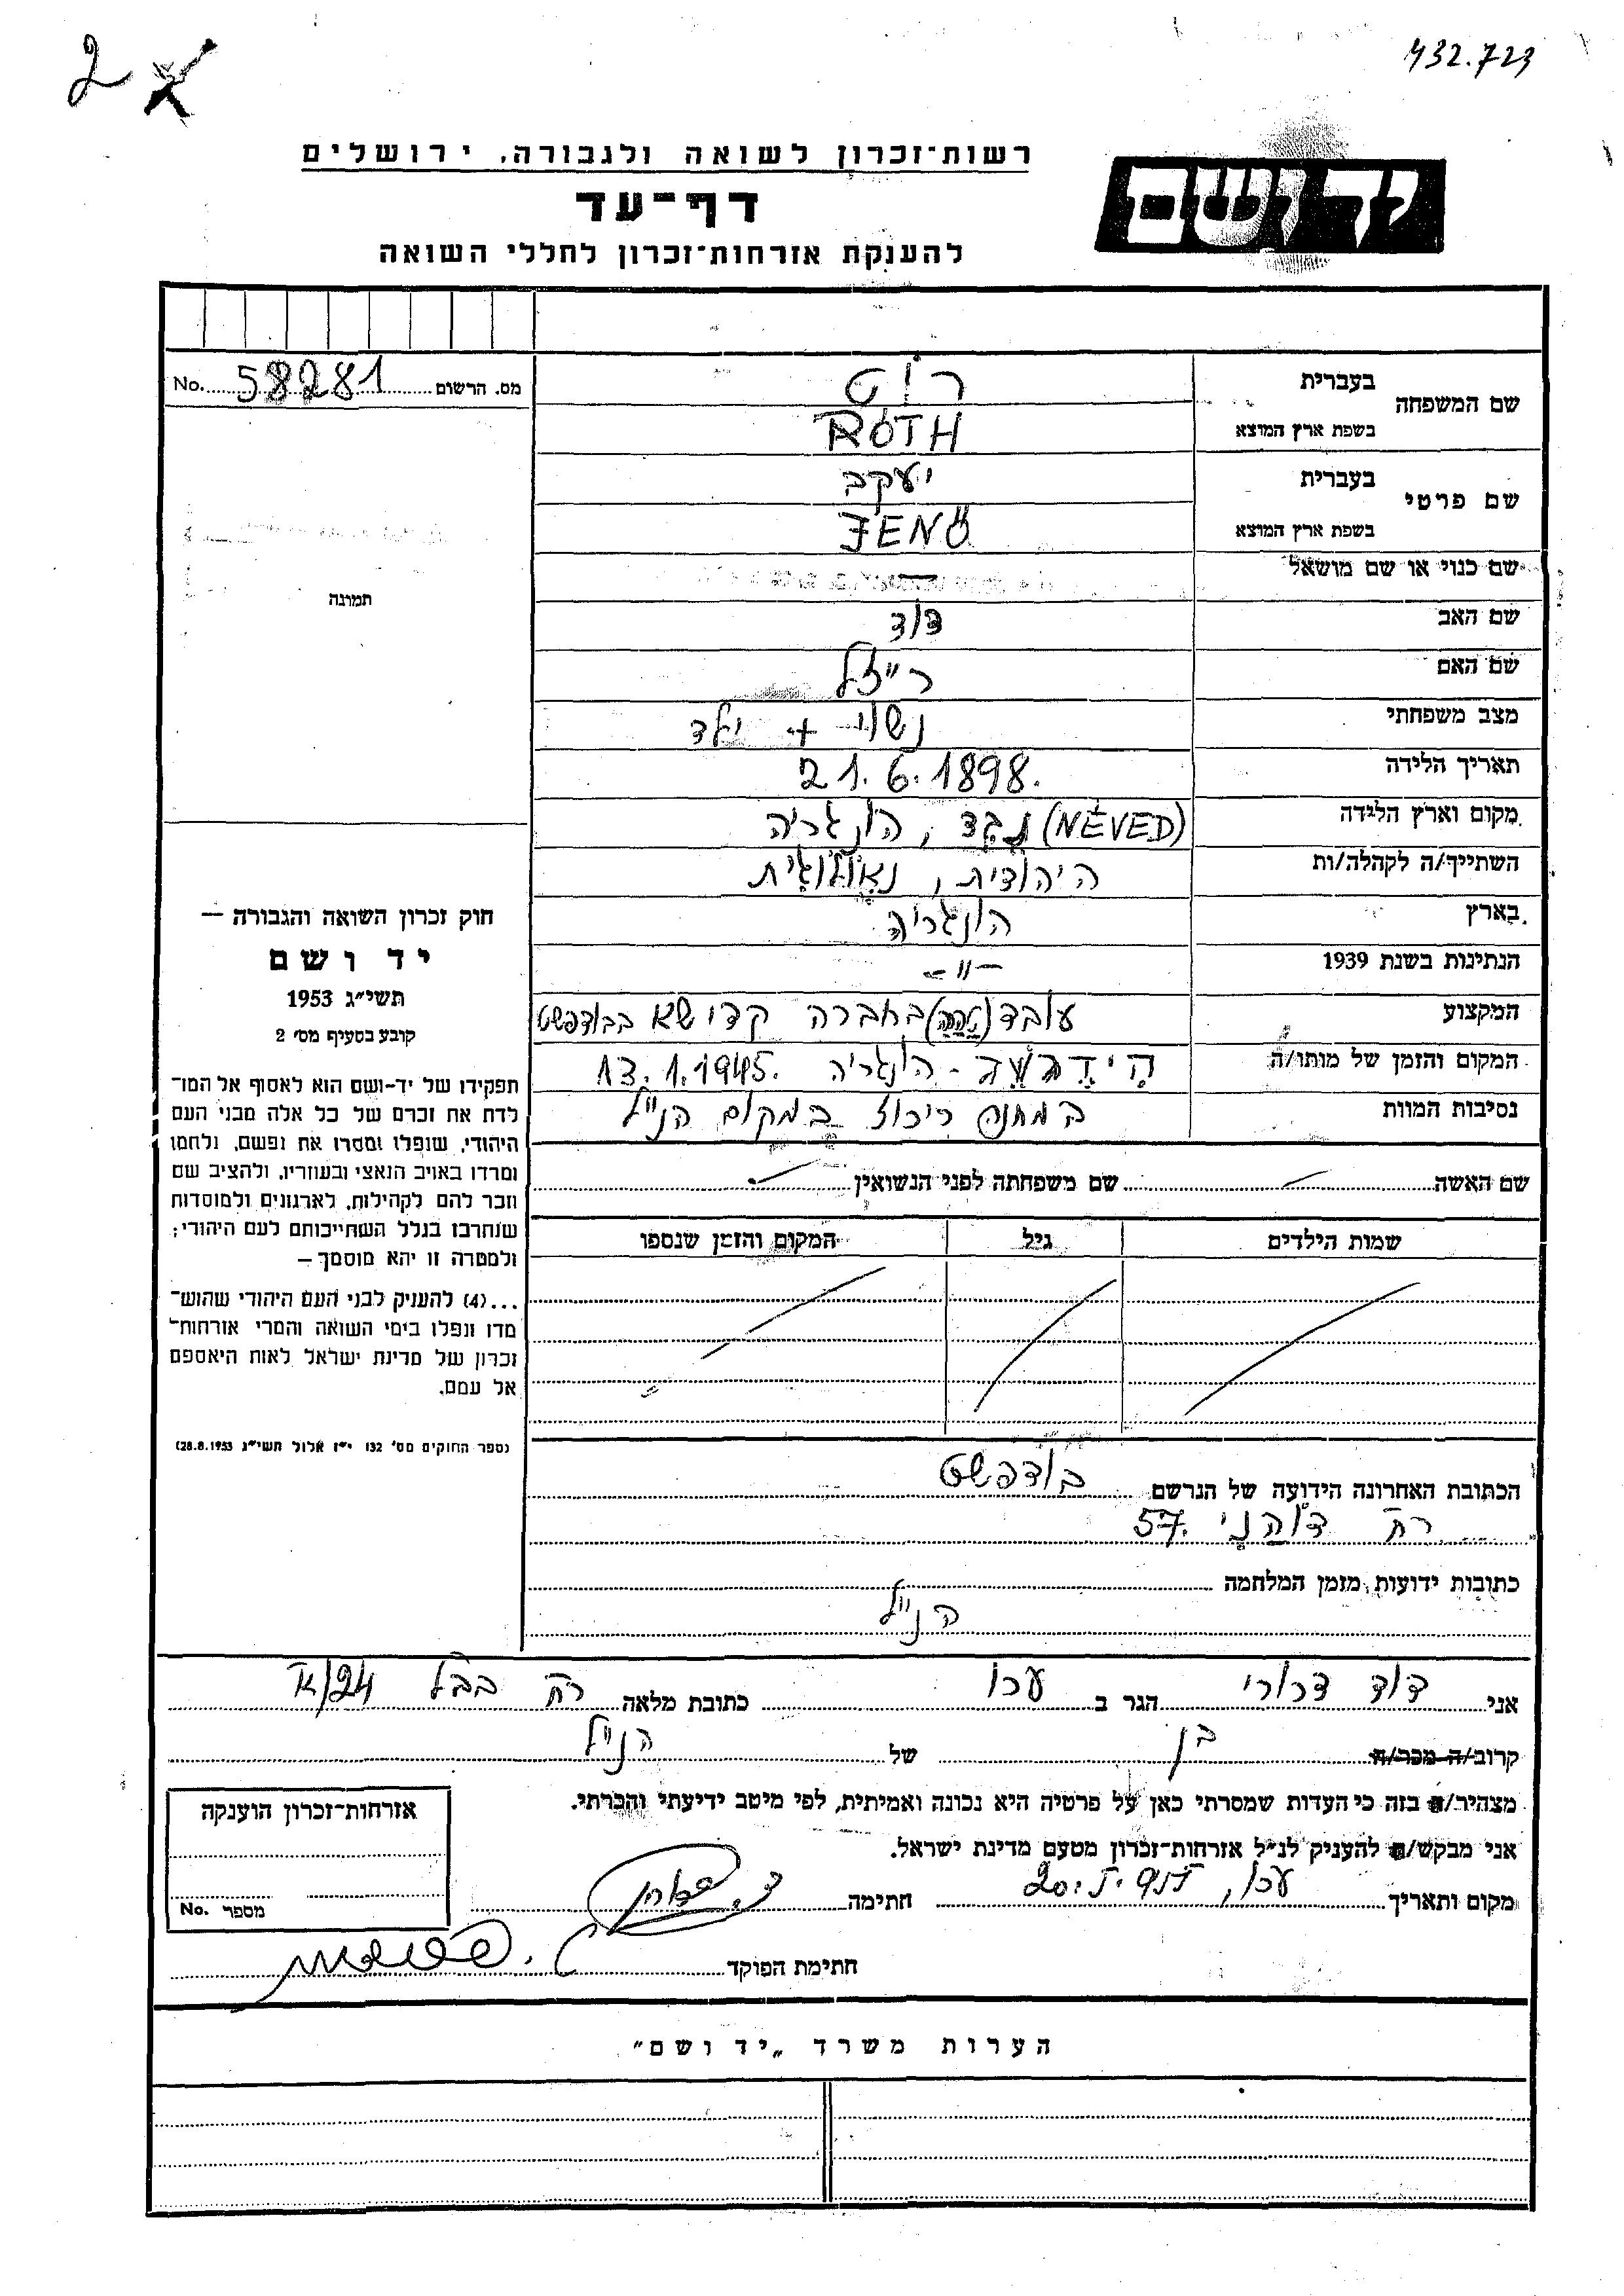 432.723
2
רשות־זכרון לשואה ולגבורה, ירושלים
יד ושם
דף־עד
להענקת אזרחות־זכרון לחללי השואה
מס. הרשום 58281 No.
שם המשפחה
בעברית רוט
בשפת ארץ המוצא RÓTH
שם פרטי
בעברית יעקב
בשפת ארץ המוצא JENŐ
שם כנוי או שם מושאל —
שם האב דוד
שם האם רייזל
מצב משפחתי נשוי + ילד
תאריך הלידה 21.6.1898.
מקום וארץ הלידה (NÉVED) נבד, הונגריה
השתייך/ה לקהלה/ות היהודית, נאולוגית
בארץ הונגריה
הנתינות בשנת 1939 -"-
המקצוע עובד בחברה קדושא בבודפשט
המקום והזמן של מותו/ה הידגשג - הונגריה 13.1.1945.
נסיבות המוות במחנה ריכוז במקום הנ"ל
תמונה
חוק זכרון השואה והגבורה —
יד ושם
תשי״ג 1953
קובע בסעיף מס׳ 2
תפקידו של יד-ושם הוא לאסוף אל המו־
לדת את זכרם של כל אלה מבני העם
היהודי, שנפלו ומסרו את נפשם, נלחמו
ומרדו באויב הנאצי ובעוזריו, ולהציב שם
וזכר להם לקהילות, לארגונים ולמוסדות
שנחרבו בגלל השתייכותם לעם היהודי;
ולמטרה זו יהא מוסמך —
...(4) להעניק לבני העם היהודי שהוש־
מדו ונפלו בימי השואה והמרי אזרחות־
זכרון של מדינת ישראל לאות היאספם
אל עמם.
(ספר החוקים מס׳ 132 י״ז אלול תשי״ג 28.8.1953)
שם האשה שם משפחתה לפני הנשואין
שמות הילדים גיל המקום והזמן שנספו
הכתובת האחרונה הידועה של הנרשם בודפשט
רח' דוהני 57.
כתובות ידועות מזמן המלחמה
הנ"ל
אני דוד דרורי הגר ב עכו כתובת מלאה רח' בבל 24/א
קרוב/ה מכר/ה בן של הנ"ל
מצהיר/ה בזה כי העדות שמסרתי כאן על פרטיה היא נכונה ואמיתית, לפי מיטב ידיעתי והכרתי.
אני מבקש/ת להעניק לנ״ל אזרחות־זכרון מטעם מדינת ישראל.
מקום ותאריך עכו, חתימה
חתימת הפוקד
אזרחות־זכרון הוענקה
מספר No.
הערות משרד „יד ושם״